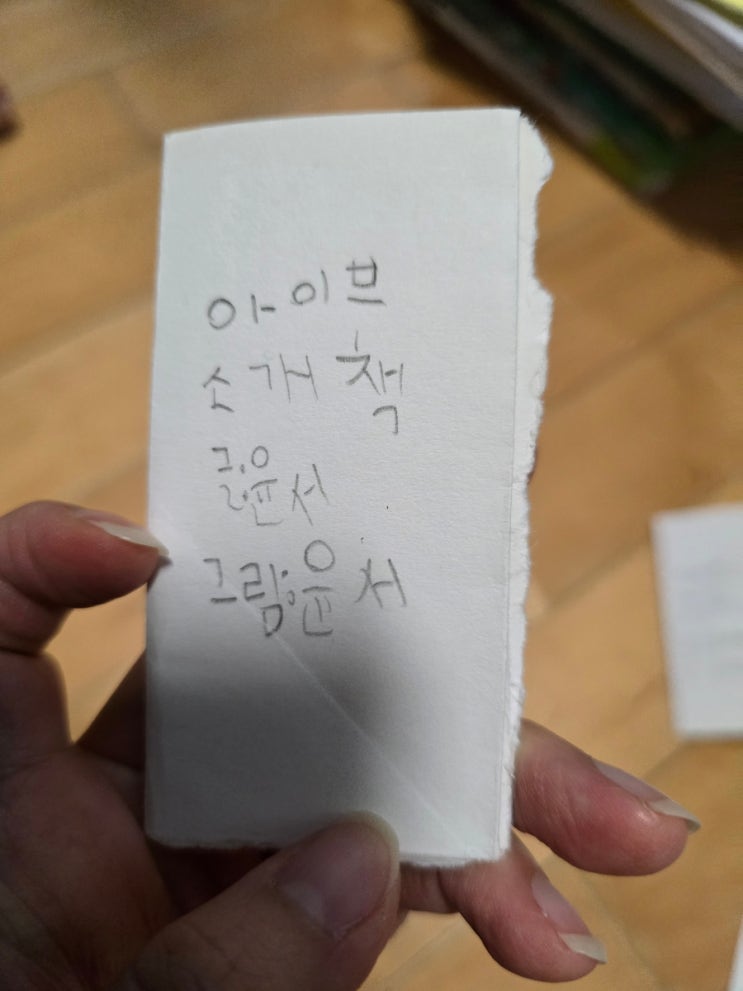 아이브
소개 책
글:윤서
그림:윤서